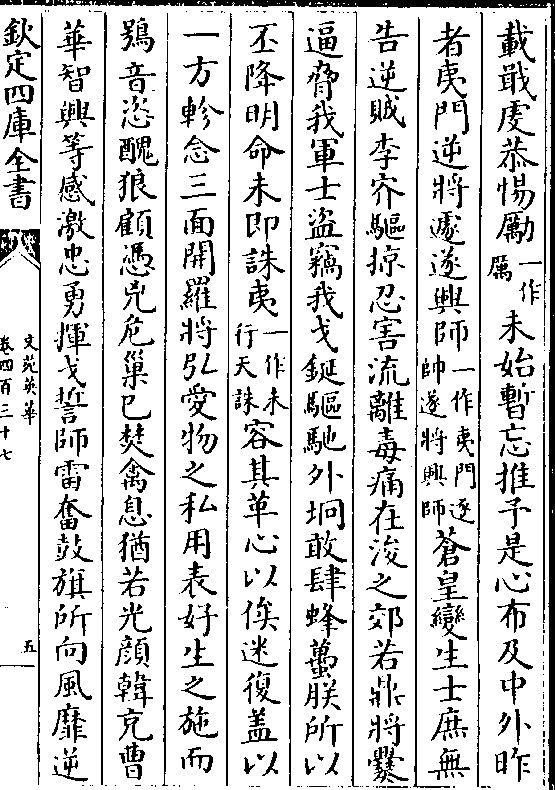 載戢虔恭惕勵一作厲未始暫忘推予是心布及中外昨
者夷門逆將遽遂興師一作夷門逐帥遂將興師蒼皇變生士庶無
告逆賊李㝏驅掠忍害流離毒痛在浚之郊若鼎將爨
逼脅我軍士盜竊我戈鋋驅馳外坰敢肆蜂蠆朕所以
丕降明命未即誅夷一作未行天誅容其革心以俟迷復蓋以
一方軫念三面開羅將弘愛物之私用表好生之施而
鴞音恣醜狼顧憑兇危巢已焚禽息猶若光顔韓充曹
華智興等感激忠勇揮戈誓師雷奮鼓旗所向風靡逆
欽定四庫全書
文苑英華
卷四百三十七
五